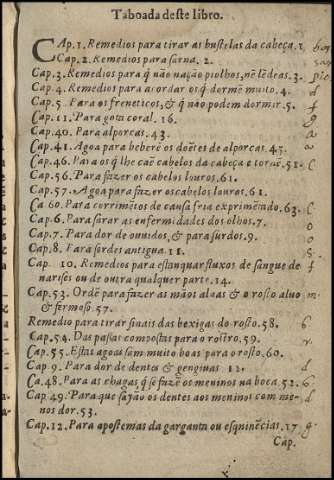 Taboada deste libro.
CAp. 1. Remedios para tirar as bustelas da cabeça. 1
Cap. 2. Remedios para sarna. 2.
Cap. 3. Remedios para q̃ não nação piolhos, nẽ lẽdeas. 3.
Cap. 4. Remedios para acordar os q̃ dormẽ muito. 4.
Cap. 5. Para os freneticos, & q̃ não podem dormir. 5.
Cap. 11. Para gota coral. 16.
Cap. 40. Para alporcas. 43.
Cap. 41. Agoa para beberẽ os doẽtes de alporcas. 45.
Cap. 46. Para os q̃ lhe caẽ cabelos da cabeça e tornẽ. 51.
Cap. 56. Para fazer os cabelos louros. 61.
Cap. 57. Agoa para fazer os cabelos louros. 61.
Ca 60. Para corrimẽtos de causa fria exprimẽtado. 63.
Cap. 6. Para sarar as enfermidades dos olhos. 7.
Cap. 7. Para dor de ouuidos, & para surdos. 9.
Cap. 8. Para sordes antigua. 11.
Cap. 10. Remedios para estanquar fluxos de sangue de
narises ou de outra qualquer parte. 14.
Cap. 53. Ordẽ para fazer as mãos aluas & o rosto aluo
& fermoso. 57.
Remedio para tirar sinais das bexigas do rosto. 58.
Cap. 54. Das passas compostas para o rostro. 59.
Cap. 55. Estas agoas sam muito boas para o rosto. 60.
Cap 9. Para dor de dentes & gengiuas 12.
Ca. 48. Para as chagas q̃ se fazẽ os meninos na boca. 52.
Cap 49. Para que sayão os dentes aos meninos com me-
nos dor. 53.
Cap. 12. Para apostemas da garganta ou esquinẽcias. 17.
Cap.